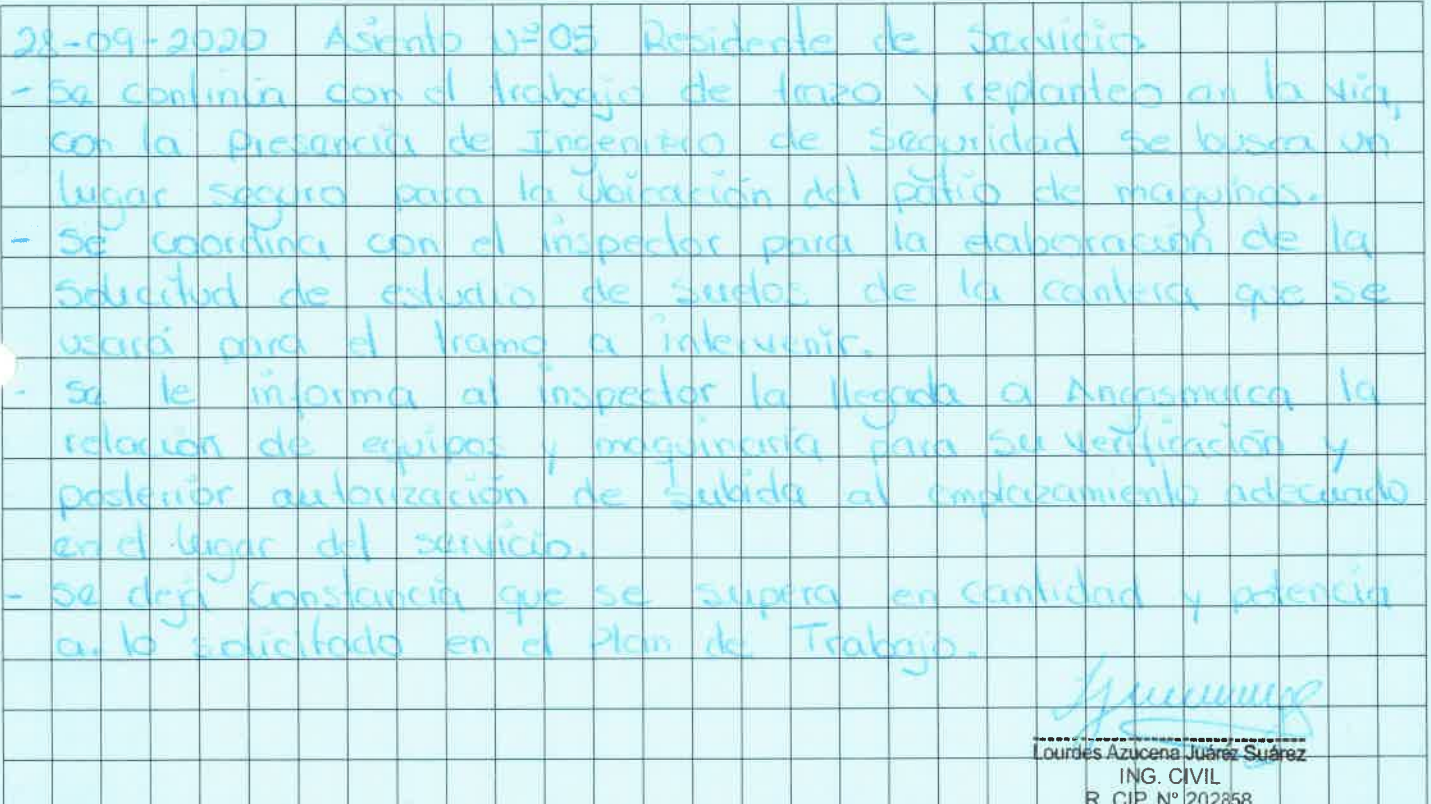 28-09-2020 Asiento Nº05 Residente de Servicio.
- Se continúa con el trabajo de trazo y replanteo en la vía,
con la Presencia de Ingeniero de Seguridad se busca un
lugar seguro para la Ubicación del patio de maquinas.
- Se coordina con el inspector para la elaboración de la
Solicitud de estudio de suelos de la cantera que se
usará para el tramo a intervenir.
- Se le informa al inspector la llegada a Angasmarca la
relación de equipos y maquinaria para su verificación y
posterior autorización de subida al emplazamiento adecuado
en el lugar del servicio.
- Se deja Constancia que se supera en cantidad y potencia
a lo solicitado en el Plan de Trabajo.
Lourdes Azucena Juárez Suárez
ING. CIVIL
R. CIP. N° 202858